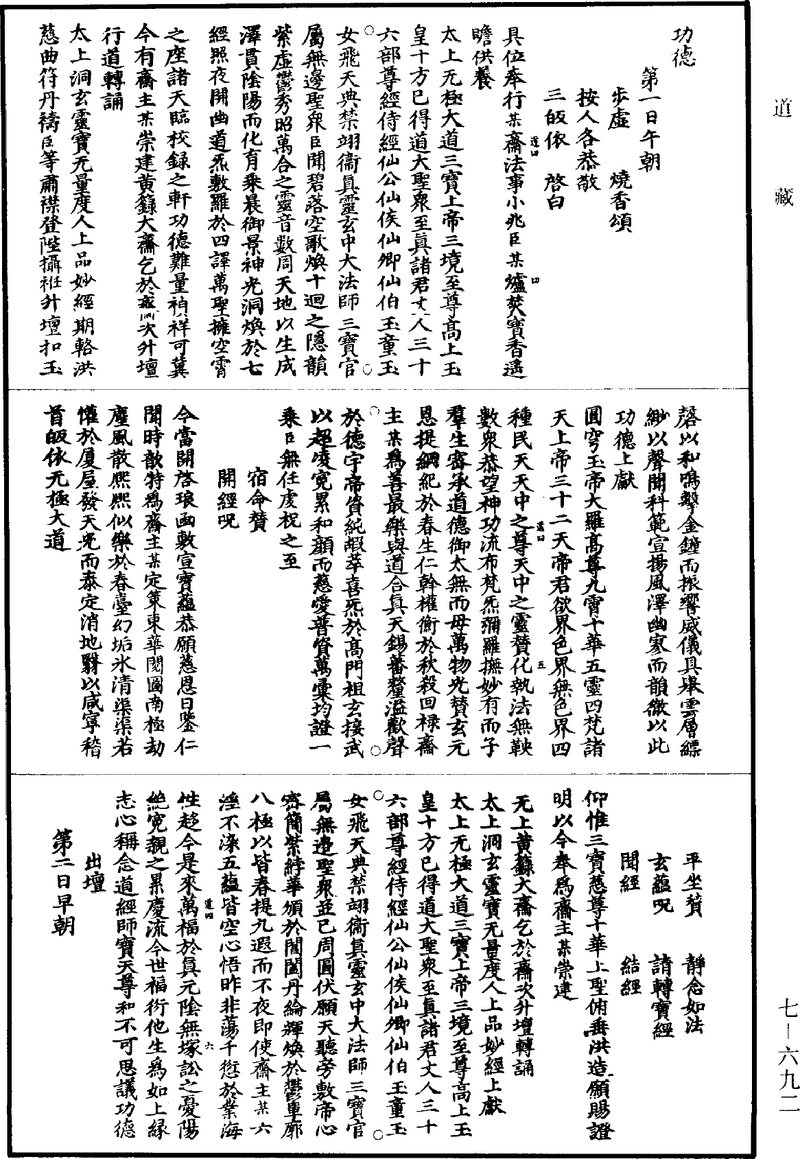 道藏
功德
第一日午朝
步虛　燒香頌
按人各恭敬
三皈依　啓白
具位奉行某齋法事小兆臣某爐焚寶香遙
瞻供養
太上无極大道三寶上帝三境至尊高上玉
皇十方已得道大聖衆至眞諸君丈人三十
六部尊經侍經仙公仙侯仙卿仙伯玉童玉
女飛天典禁翊衞眞靈玄中大法師三寶官
屬無邊聖衆臣聞碧落空歌煥十迴之隱韻
紫虛鬱秀昭萬合之靈音數周天地以生成
澤貫陰陽而化育乘晨御景神光洞煥於七
經照夜開幽道炁敷羅於四譯萬聖擁空霄
之座諸天臨校録之軒功德難量禎祥可冀
今有齋主某崇建黃籙大齋乞於齋次升壇
行道轉誦
太上洞玄靈寶无量度人上品妙經期輅洪
慈曲符丹禱臣等肅襟登陛攝袵升壇扣玉
磬以和鳴擊金鐘而振響威儀具舉雲層縹
緲以聲聞科範宣揚風澤幽寥而韻徹以此
功德上獻
圓穹玉帝大羅高尊九霄十華五靈四梵諸
天上帝三十二天帝君欲界色界無色界四
種民天天中之尊天中之靈贊化執法無鞅
數衆恭望神功流布梵炁彌羅撫妙有而子
羣生密承道德御太無而母萬物光贊玄元
恩提綱紀於春生仁斡權衡於秋殺回祿齋
主某爲善最樂與道合眞天錫蕃釐溢歡聲
於德宇帝資純嘏萃喜炁於高門祖玄接武
以超凌寃累和顏而慈愛普資萬彙均證一
乘臣無任虔祝之至
宿命贊
開經呪
今當開啓琅函敷宣寶蘊恭願慈恩日鑒仁
聞時歆特爲齋主某定策東華閱圖南極劫
塵風散熙熙似樂於春臺幻垢氷清渠渠若
懽於廈屋發天光而泰定消地翳以咸寧稽
首皈依无極大道
平坐贊　靜念如法
玄蘊呪　請轉寶經
聞經　結經
仰惟三寶慈尊十華上聖俯垂洪造願賜證
明以今奉爲齋主某崇建
无上黃籙大齋乞於齋次升壇轉誦
太上洞玄靈寶无量度人上品妙經上獻
太上无極大道三寶上帝三境至尊高上玉
皇十方已得道大聖衆至眞諸君丈人三十
六部尊經侍經仙公仙侯仙卿仙伯玉童玉
女飛天典禁翊衞眞靈玄中大法師三寶官
屬無邊聖衆並已周圓伏願天聽旁敷帝心
密簡紫綍華頒於閶闔丹綸輝煥於鬱單廓
八極以皆春提九遐而不夜即使齋主某六
淫不染五蘊皆空心悟昨非蕩千愆於業海
性趍今是來萬福於眞元陰無塚訟之憂陽
絕寃親之累慶流今世福衍他生爲如上緣
志心稱念道經師寶天尊和不可思議功德
出壇
第二日早朝
七—六九二